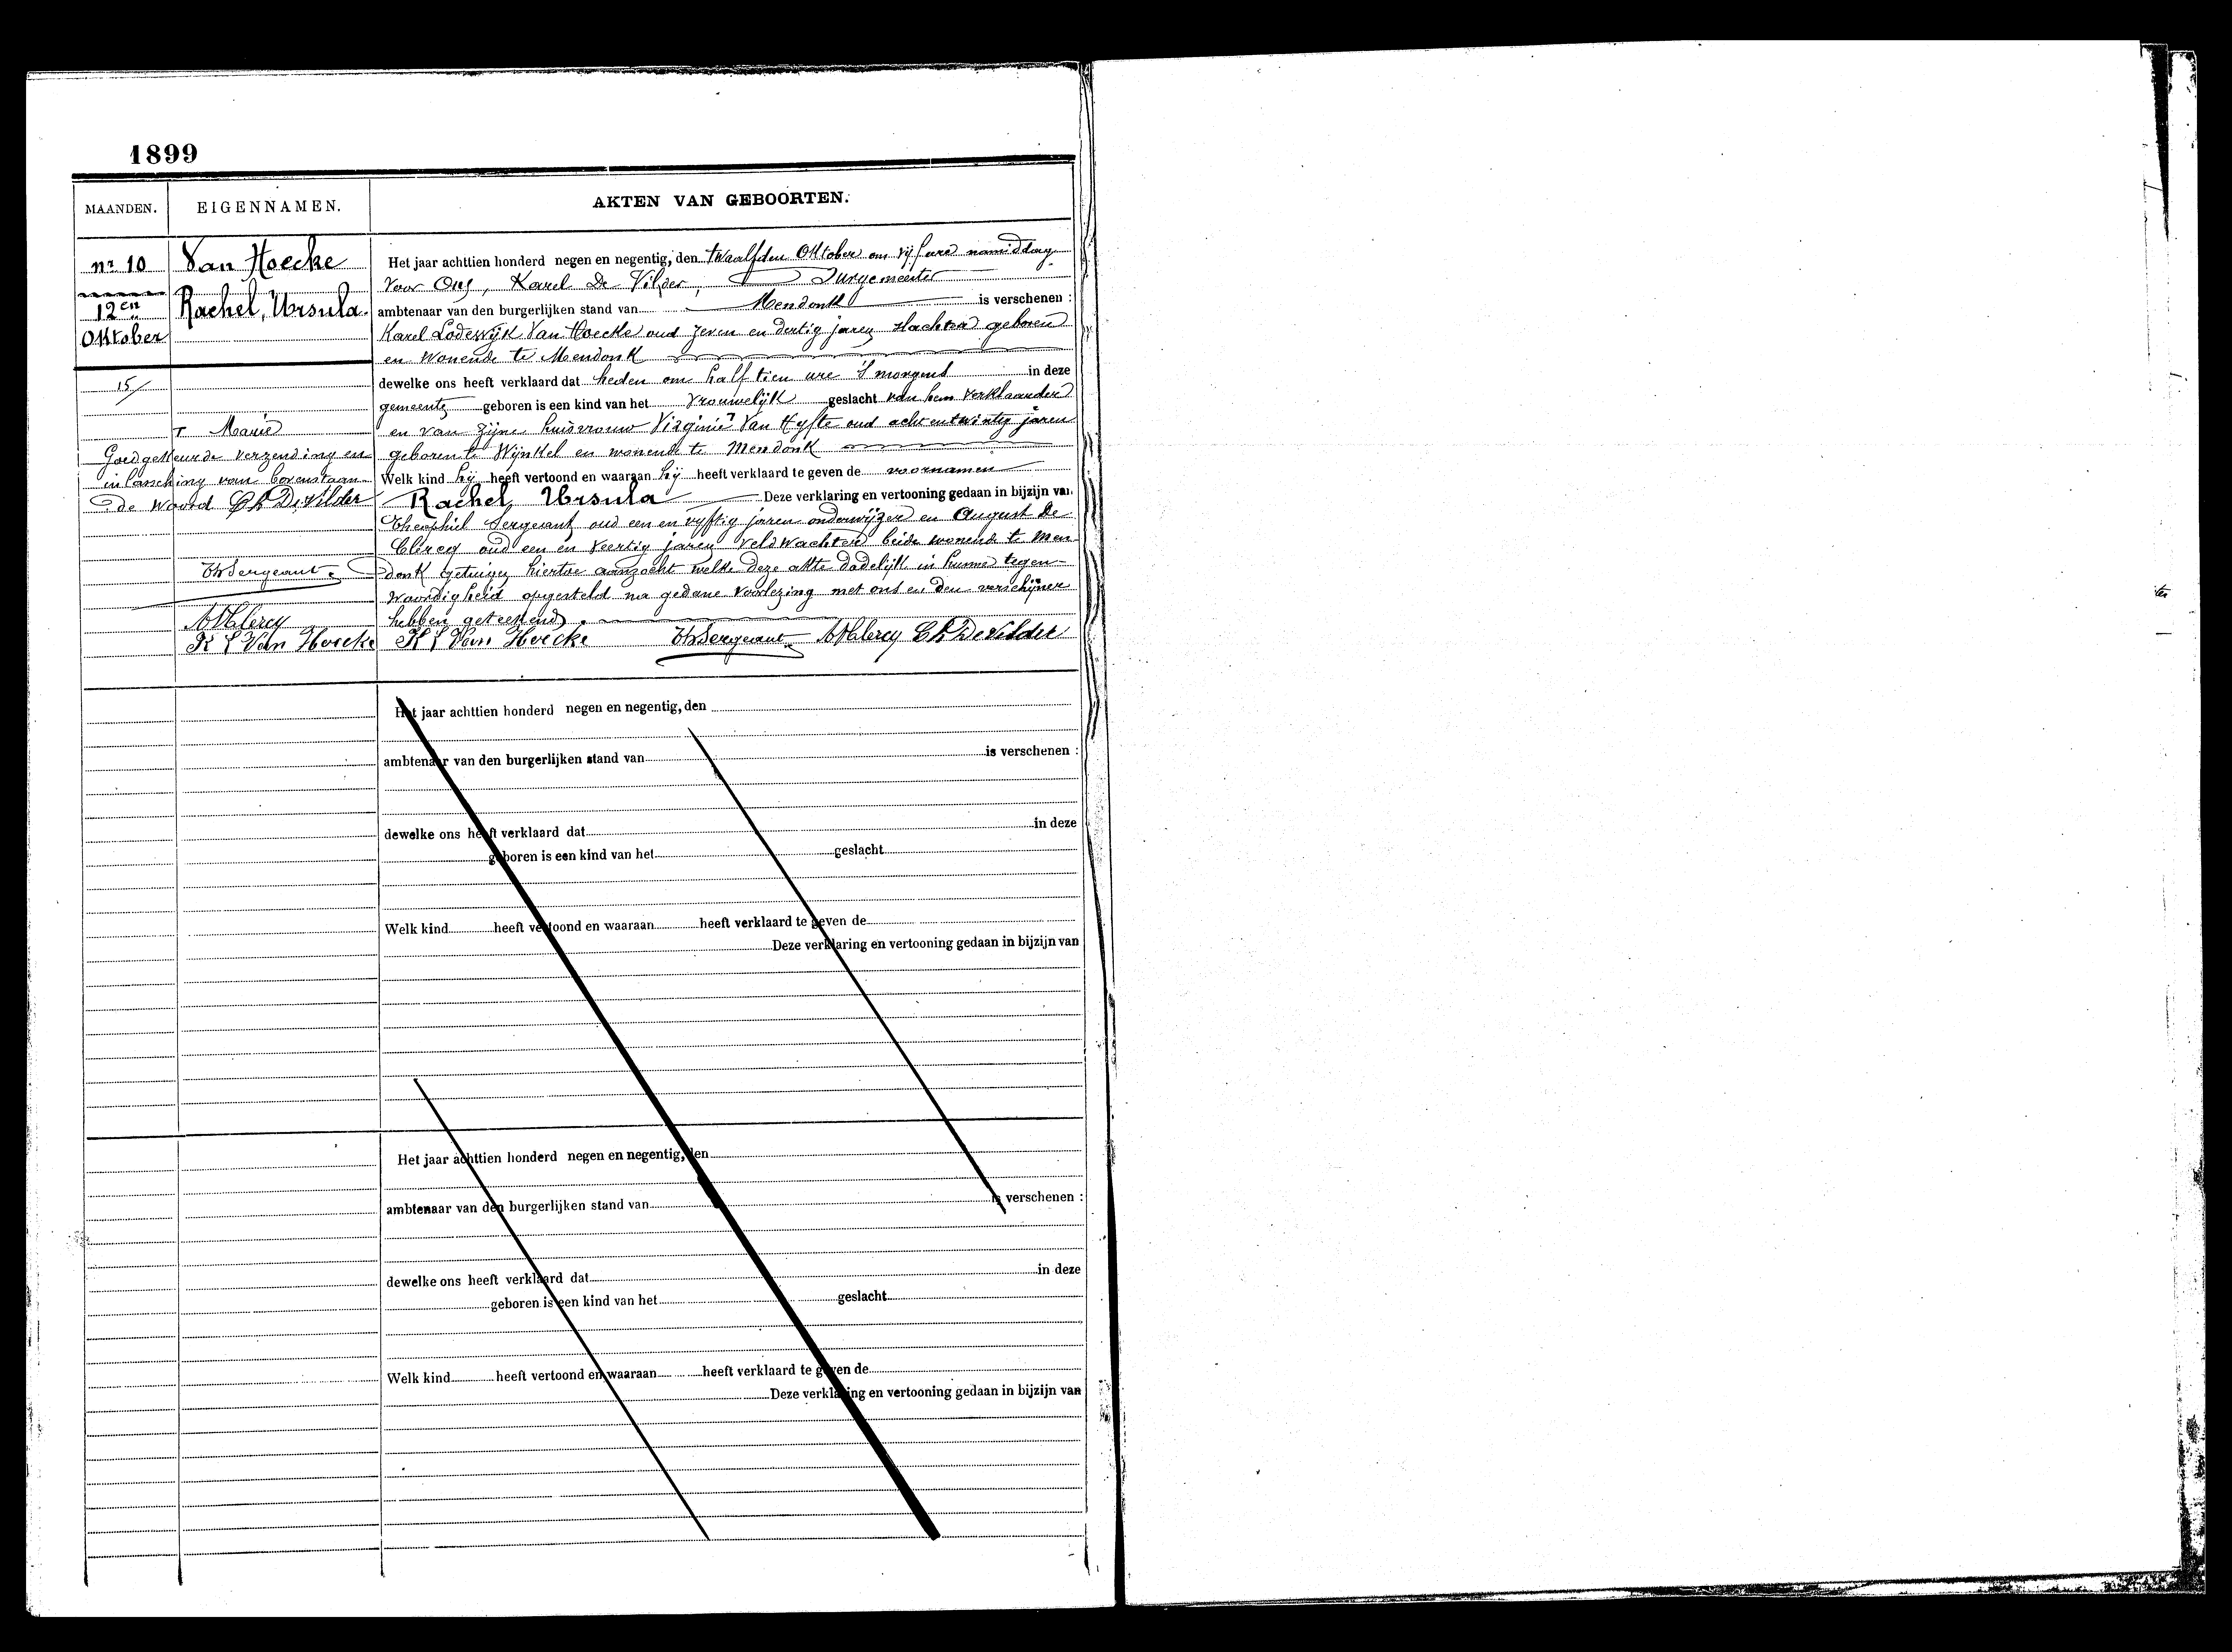 1899
MAANDEN. EIGENNAMEN. AKTEN VAN GEBOORTEN.
nr 10
12en
Oktober
15/
Van Hoecke
Rachel, Ursula.
Marie
Goedgekeurde verzending en
inlassching van bovenstaan-
de woord Ch De Vilder
ThSergeant
A DClercq
K L Van Hoecke
Het jaar achttien honderd negen en negentig, den twaalfden Oktober om vijf ure namiddag
voor Ons, Karel De Vilder, Burgemeester
ambtenaar van den burgerlijken stand van Mendonk is verschenen :
Karel Lodewijk Van Hoecke oud zeven en dertig jaren, slachter geboren
en wonende te Mendonk
dewelke ons heeft verklaard dat heden om half tien ure 's morgens in deze
gemeente geboren is een kind van het vrouwelijk geslacht van hem verklaarder
en van zijne huisvrouw Virginie Van Hyfte oud acht entwintig jaren
geboren te Wynkel en wonende te Mendonk
Welk kind hij heeft vertoond en waaraan hij heeft verklaard te geven de voornamen
Rachel Ursula Deze verklaring en vertooning gedaan in bijzijn van
Theophil Sergeant, oud een en vyftig jaren onderwijzer en August De
Clercq oud een en veertig jaren veldwachter beide wonende te Men-
donk getuigen hiertoe aanzocht welke deze akte dadelijk in hunne tegen-
woordigheid opgesteld na gedane voorlezing met ons en den verschijner
hebben geteekend.
K L Van Hoecke ThSergeant A DClercq Ch De Vilder
Het jaar achttien honderd negen en negentig, den
ambtenaar van den burgerlijken stand van is verschenen :
dewelke ons heeft verklaard dat in deze
geboren is een kind van het geslacht
Welk kind heeft vertoond en waaraan heeft verklaard te geven de
Deze verklaring en vertooning gedaan in bijzijn van
Het jaar achttien honderd negen en negentig, den
ambtenaar van den burgerlijken stand van is verschenen :
dewelke ons heeft verklaard dat in deze
geboren is een kind van het geslacht
Welk kind heeft vertoond en waaraan heeft verklaard te geven de
Deze verklaring en vertooning gedaan in bijzijn van